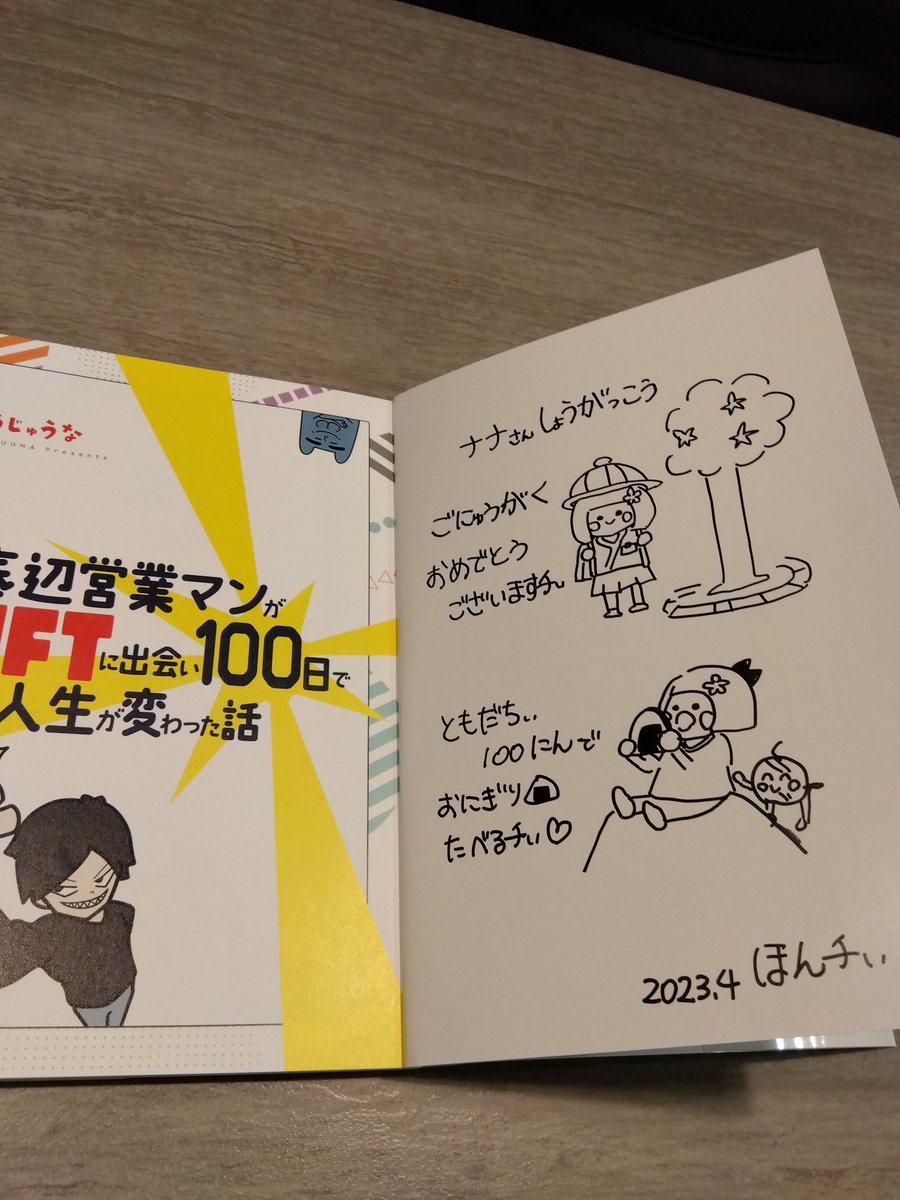 じゅうな
Presents
辺営業マンが
NFTに出会い100日で
人生が変わった話
ナナさんしょうがっこう
ごにゅうがく
おめでとう
ございますチぃ
ともだちぃ
100にんで
おにぎり
たべるチぃ♡
2023.4 ほんチぃ